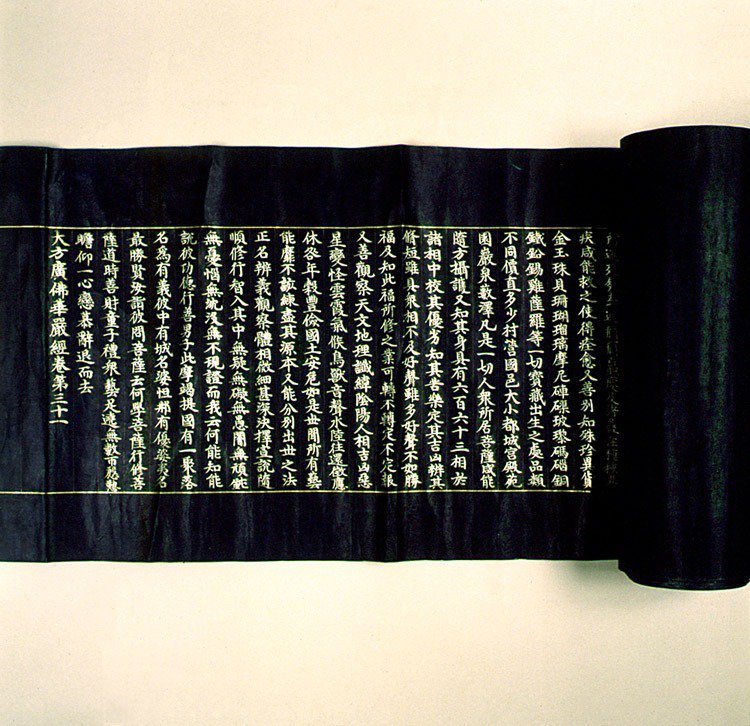 疾咸能救之使得痊愈又善別知殊珍異貨
金玉珠貝珊瑚瑠璃摩尼硨磲玻瓈碼碯銅
鐵鉛錫雞薩羅等一切寶藏出生之處品類
不同價直多少村營國邑大小都城宮殿苑
園巖泉藪澤凡是一切人衆所居菩薩咸能
隨方攝護又知其身具有六百六十三相於
諸相中校其優劣知其苦樂定其吉凶辨其
脩短雖具衆相不及好聲雖多好聲不如勝
福及知此福所修之業可轉不轉定不定報
又善觀察天文地理讖緯陰陽人相吉凶惡
星變怪雲霞氣候鳥獸音聲水陸往還徵應
休咎年穀豐儉國土安危如是世間所有藝
能靡不該練盡其源本又能分別出世之法
正名辨義觀察體相微細甚深決擇宣說隨
順修行智入其中無疑無礙無愚闇無頑鈍
無憂惱無沉沒無不現證而我云何能知能
說彼功德行善男子此摩竭提國有一聚落
名為有義彼中有城名婆怛那有優婆夷名
最勝賢汝詣彼問菩薩云何學菩薩行修菩
薩道時善財童子禮衆藝足遶無數帀慇懃
瞻仰一心戀慕辭退而去
大方廣佛華嚴經卷第三十一